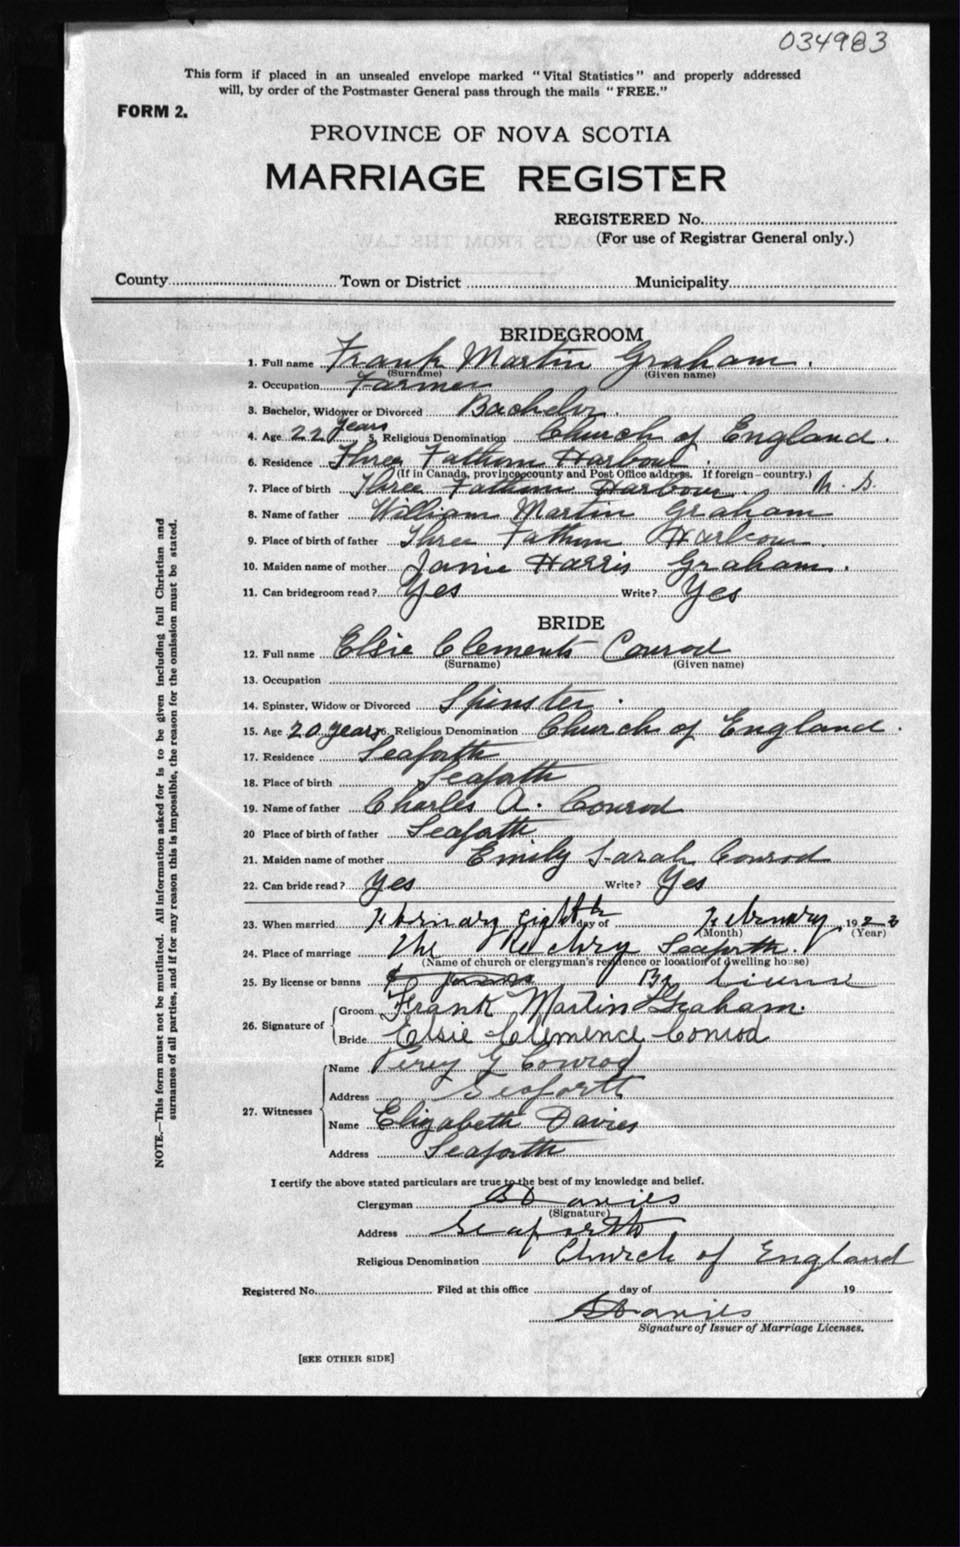 034983
This form if placed in an unsealed envelope marked "Vital Statistics" and properly addressed
will, by order of the Postmaster General pass through the mails "FREE."
FORM 2.
PROVINCE OF NOVA SCOTIA
MARRIAGE REGISTER
REGISTERED No.
(For use of Registrar General only.)
County Town or District Municipality
BRIDEGROOM
1. Full name Frank Martin Graham.
(Surname) (Given name)
2. Occupation Farmer
3. Bachelor, Widower or Divorced Bachelor.
4. Age 22 years 5. Religious Denomination Church of England.
6. Residence Three Fathom Harbour.
(If in Canada, province, county and Post Office address. If foreign—country.)
7. Place of birth Three Fathom Harbour. N. S.
8. Name of father William Martin Graham
9. Place of birth of father Three Fathom Harbour.
10. Maiden name of mother Janie Harris Graham.
11. Can bridegroom read? Yes Write? Yes
BRIDE
12. Full name Elsie Clements Conrod
(Surname) (Given name)
13. Occupation
14. Spinster, Widow or Divorced Spinster.
15. Age 20 years 16. Religious Denomination Church of England.
17. Residence Seaforth
18. Place of birth Seaforth
19. Name of father Charles A. Conrod
20 Place of birth of father Seaforth
21. Maiden name of mother Emily Sarah Conrod
22. Can bride read? Yes Write? Yes
23. When married February Eighth day of February, 1923
(Month) (Year)
24. Place of marriage The Rectory Seaforth.
(Name of church or clergyman's residence or location of dwelling house)
25. By license or banns By License
26. Signature of
Groom Frank Martin Graham.
Bride Elsie Clemence Conrod
27. Witnesses
Name Percy Y Conrod
Address Seaforth
Name Elizabeth Davies
Address Seaforth
I certify the above stated particulars are true to the best of my knowledge and belief.
Clergyman Davies
(Signature)
Address Seaforth
Religious Denomination Church of England
Registered No. Filed at this office day of 19
Davies
Signature of Issuer of Marriage Licenses.
[SEE OTHER SIDE]
NOTE.—This form must not be mutilated. All information asked for is to be given including full Christian and
surnames of all parties, and if for any reason this is impossible, the reason for the omission must be stated.